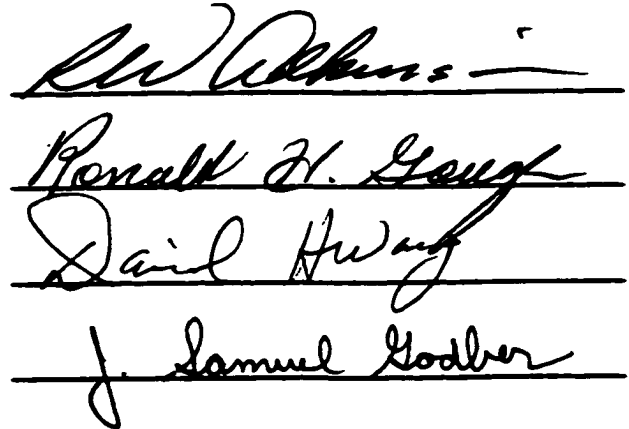 RW Adkinson
Ronald H. Gough
David Hwang
J. Samuel Godber